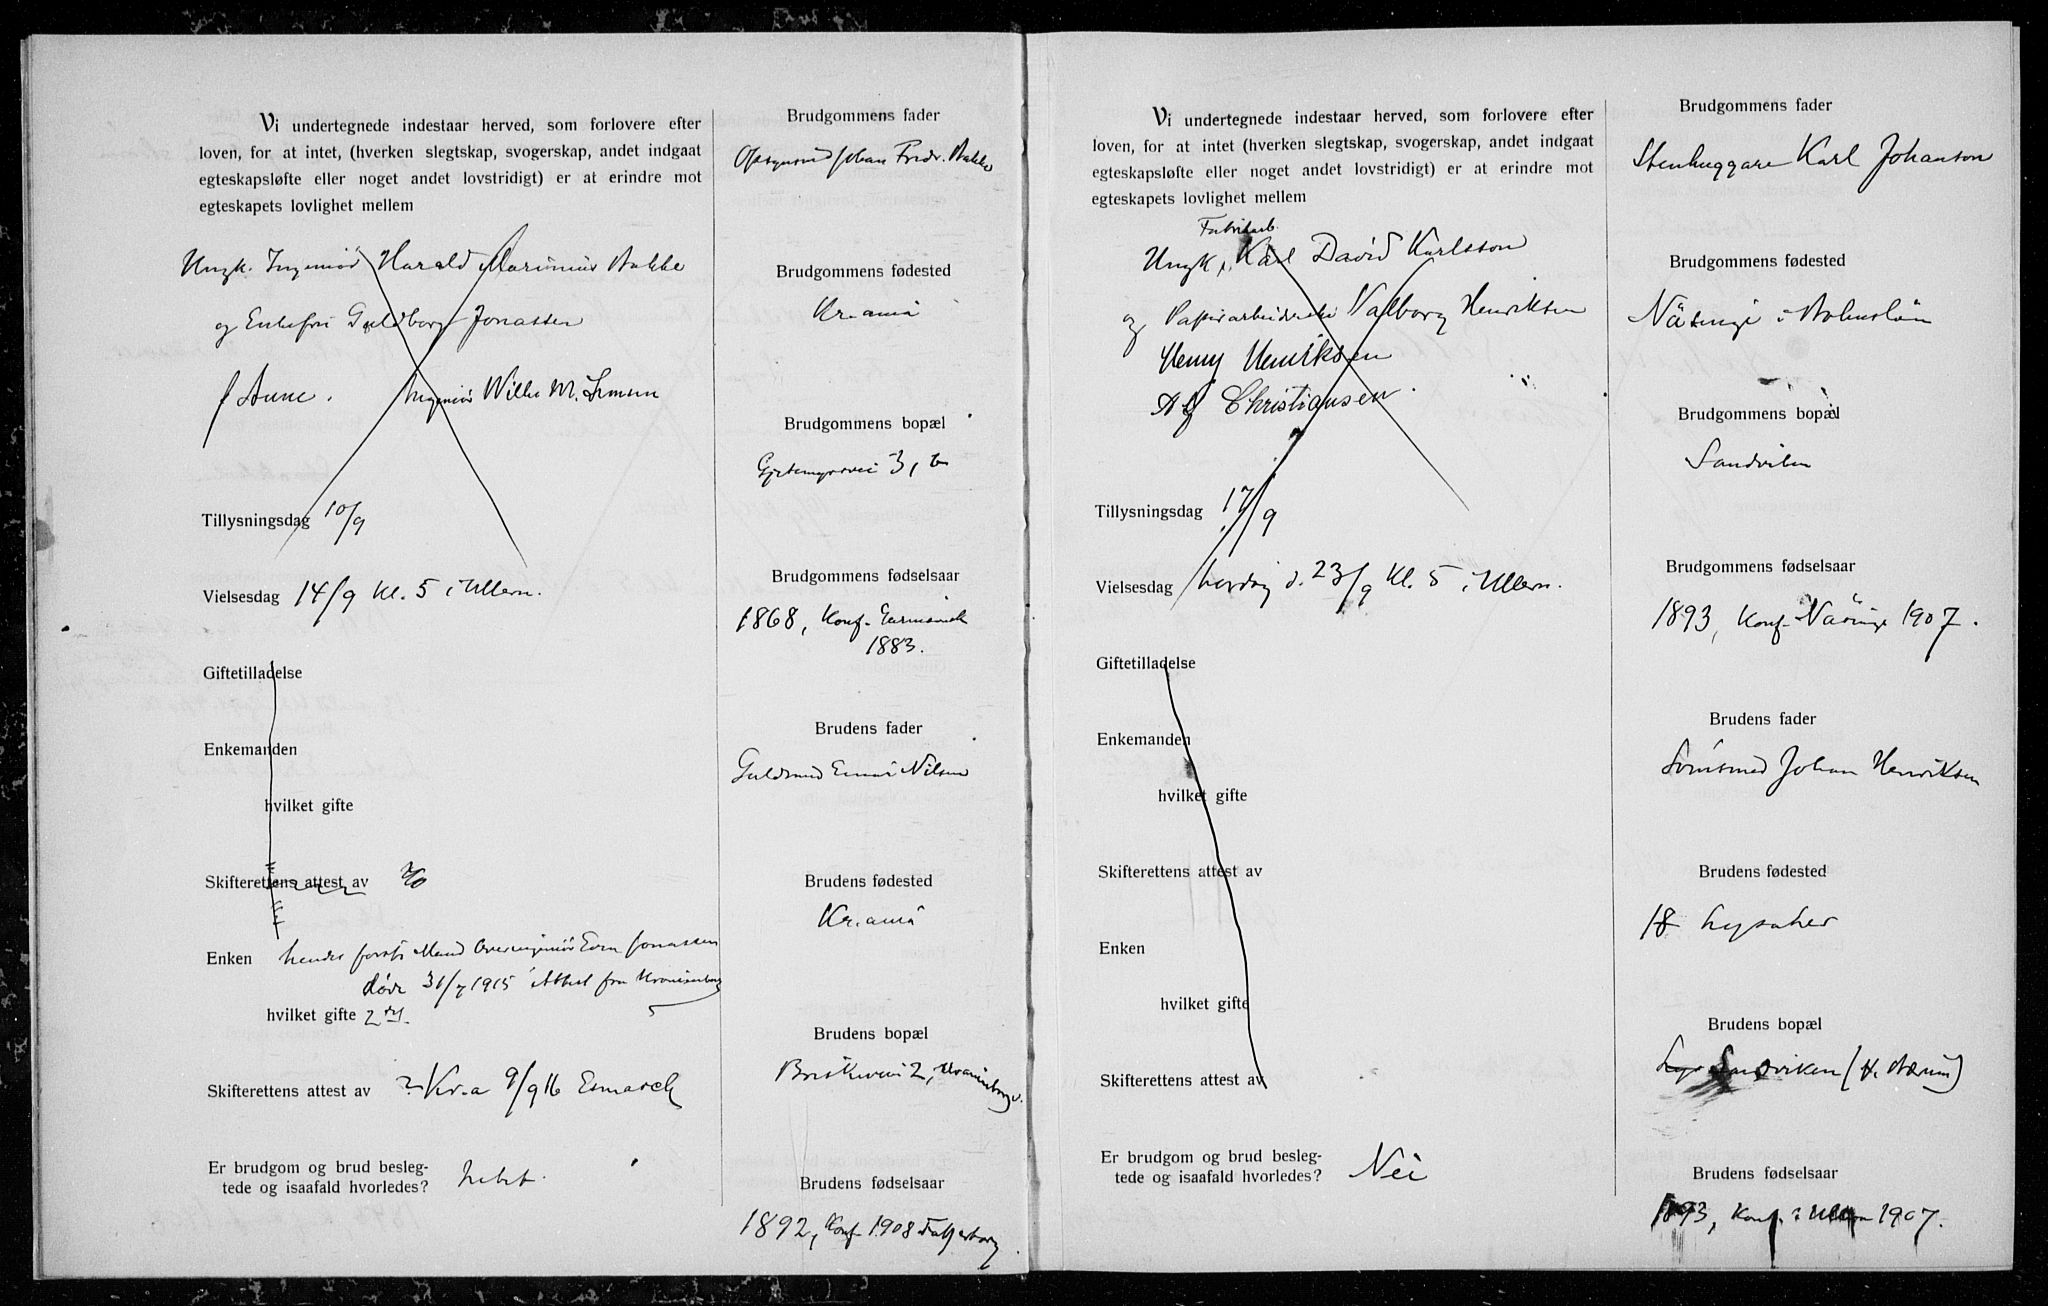 Vi undertegnede indestaar herved, som forlovere efter
loven, for at intet, (hverken slegtskap, svogerskap, andet indgaat
egteskapsløfte eller noget andet lovstridigt) er at erindre mot
egteskapets lovlighet mellem
Ungk. Ingeniør Harald Marinius Bakke
og Enkefru Guldborg Jonassen
Ingeniør Wilh. M.
Tillysningsdag 10/9
Vielsesdag 14/9 Kl. 5 i Ullern.
Giftetilladelse
Enkemanden
hvilket gifte
Skifterettens attest av
Enken hendes første Mand Overingeniør Jonassen
døde 31/7 1915 Attest fra Uranienborg
hvilket gifte 2det.
Skifterettens attest av Kr.a 9/9 16 Esmarch
Er brudgom og brud besleg-
tede og isaafald hvorledes?
Brudgommens fader
Johan Fredr. Bakke
Brudgommens fødested
Kr.ania
Brudgommens bopæl
3, b
Brudgommens fødselsaar
1868, Konf.
1883.
Brudens fader
Guldsmed Einar Nilsen
Brudens fødested
Kr.ania
Brudens bopæl
Briskeveien 2, Uranienborg
Brudens fødselsaar
1892, Konf. 1908 Fagerborg
Vi undertegnede indestaar herved, som forlovere efter
loven, for at intet, (hverken slegtskap, svogerskap, andet indgaat
egteskapsløfte eller noget andet lovstridigt) er at erindre mot
egteskapets lovlighet mellem
Fabrikarb.
Ungk. Karl David Karlsson
og Papirarbeiderske Valborg Henriksen
Henry Henriksen
Alf Christiansen.
Tillysningsdag 17/9
Vielsesdag Lørdag d. 23/9 Kl. 5 i Ullern.
Giftetilladelse
Enkemanden
hvilket gifte
Skifterettens attest av
Enken
hvilket gifte
Skifterettens attest av
Er brudgom og brud besleg-
tede og isaafald hvorledes? Nei
Brudgommens fader
Stenhuggare Karl Johanson
Brudgommens fødested
Näsinge i Bohuslän
Brudgommens bopæl
Sandviken
Brudgommens fødselsaar
1893, Konf. Näsinge 1907.
Brudens fader
Johan Henriksen
Brudens fødested
18 Lysaker
Brudens bopæl
Lys Sandviken (V. Bærum)
Brudens fødselsaar
1893, Konf. i Ullern 1907.